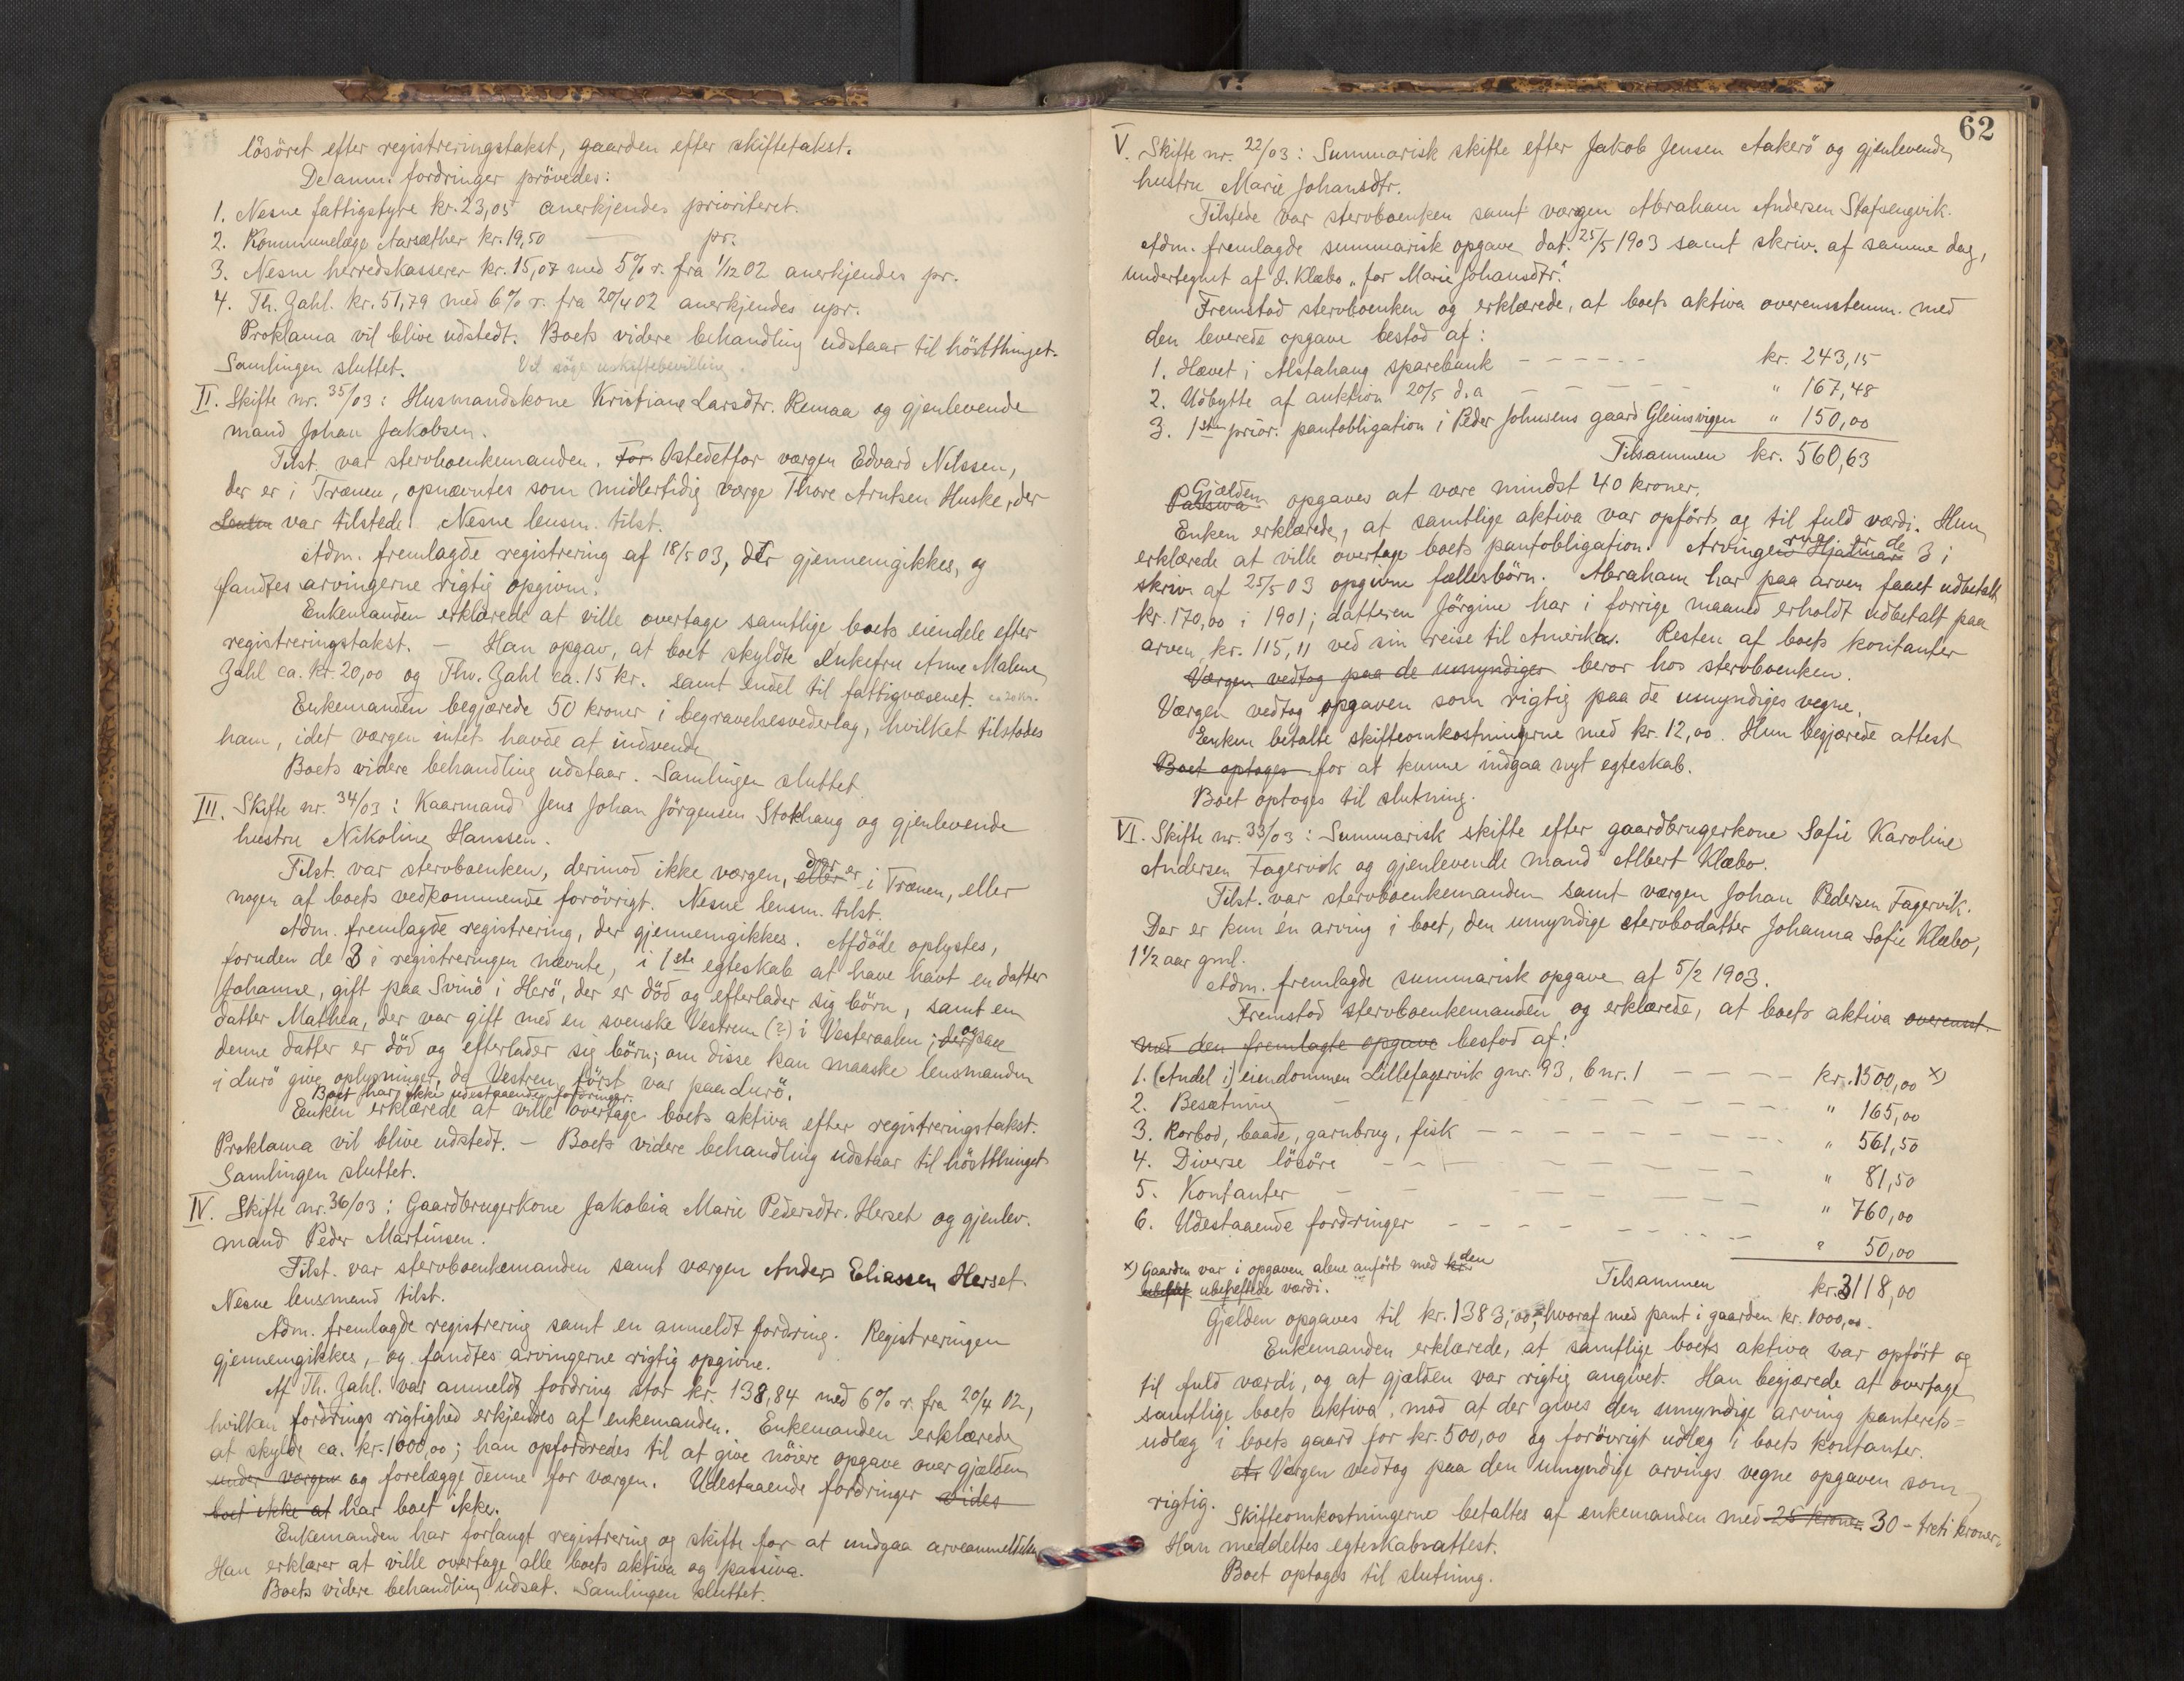 lösöret efter registreringstakst, gaarden efter skiftetakst.
De anm. fordringer prövedes:
1. Nesne fattigstyre kr. 23,05 anerkjendes prioriteret.
2. Kommunelæge Aarsæther kr. 19,50 — pr.
3. Nesne herredskasserer kr. 15,07 med 5% r. fra 1/12 02 anerkjendes pr.
4. Th. Zahl. kr. 51,79 med 6% r. fra 20/4 02 anerkjendes upr.
Proklama vil blive udstedt. Boets videre behandling udstaar til höstthinget.
Samlingen sluttet. Vil söge uskiftebevilling.
II. Skifte nr. 35/03: Husmandskone Kristiane Larsdtr. Remaa og gjenlevende
mand Johan Jakobsen.
Tilst. var stervboenkemanden. For Istedetfor værgen Edvard Nilssen,
der er i Trænen, opnævntes som midlertidig værge Thore Arntsen Huske, der
var tilstede. Nesne lensm. tilst.
Adm. fremlagde registrering af 18/5 03, der gjennemgikkes, og
fandtes arvingerne rigtig opgivne.
Enkemanden erklærede at ville overtage samtlige boets eiendele efter
registreringstakst. — Han opgav, at boet skyldte enkefru Anne Malene
Zahl ca. kr. 20,00 og Thv. Zahl ca. 15 kr. samt endel til fattigvæsenet. ca 20 kr.
Enkemanden begjærede 50 kroner i begravelsesvederlag, hvilket tilstodes
ham, idet værgen intet havde at indvende
Boets videre behandling udstaar. Samlingen sluttet
III. Skifte nr. 34/03: Kaarmand Jens Johan Jörgensen Stokhaug og gjenlevende
hustru Nikoline Hanssen.
Tilst. var stervboenken, derimod ikke værgen, eller der er i Trænen, eller
nogen af boets vedkommende forövrigt. Nesne lensm. tilst.
Adm. fremlagde registrering, der gjennemgikkes. Afdöde oplystes,
foruden de 3 i registreringen nævnte, i 1ste egteskab at have havt en datter
Johanne, gift paa Svinö i Herö, der er död og efterlader sig börn, samt en
datter Mathea, der var gift med en svenske Vestrum (?) i Vesteraalen; der og paa
denne datter er död og efterlader sig börn; om disse kan maaske lensmanden
i Lurö give oplysninger, da Vestren först var paa Lurö.
Boet har ikke udestaaende fordringer.
Enken erklærede at ville overtage boets aktiva efter registreringstakst.
Proklama vil blive udstedt. — Boets videre behandling udstaar til höstthinget
Samlingen sluttet.
IV. Skifte nr. 36/03: Gaardbrugerkone Jakobia Marie Pedersdtr. Herset og gjenlev.
mand Peder Martinsen.
Tilst. var stervboenkemanden samt værgen Anders Eliassen Herset.
Nesne lensmand tilst.
Adm. fremlagde registrering samt en anmeldt fordring. Registreringen
gjennemgikkes, og fandtes arvingerne rigtig opgivne.
Af Th. Zahl. var anmeldt fordring stor kr. 138,84 med 6% r. fra 20/4 02,
hvilken fordrings rigtighed erkjendes af enkemanden. Enkemanden erklærede
at skylde ca. kr. 1000,00; han opfordredes til at give nöiere opgave over gjælden
under værgen og forelægge denne for værgen. Udestaaende fordringer vides
boet ikke at har boet ikke.
Enkemanden har forlangt registrering og skifte for at undgaa arveanmeldelse
Han erklærer at ville overtage alle boets aktiva og passiva.
Boets videre behandling udsat. Samlingen sluttet.
62
V. Skifte nr. 22/03: Summarisk skifte efter Jakob Jensen Aakerö og gjenlevende
hustru Marie Johansdtr.
Tilstede var stervboenken samt værgen Abraham Andersen Stafsengvik.
Adm. fremlagde summarisk opgave dat. 25/5 1903 samt skriv. af samme dag,
undertegnet af J. Klæbo „for Marie Johansdtr."
Fremstod stervboenken og erklærede, at boets aktiva overensstemm. med
den leverede opgave bestod af:
1. Havet i Alstahaug sparebank - - - - - kr. 243,15
2. Udbytte af auktion 20/5 d.a - - - - - " 167,48
3. 1ste prior. pantobligation i Peder Johnsens gaard Gleinsvigen " 150,00
Tilsammen kr. 560,63
Passiva Gjælden opgaves at være mindst 40 kroner.
Enken erklærede, at samtlige aktiva var opfört og til fuld værdi. Hun
erklærede at ville overtage boets pantobligation. Arvingerne Hjalmar er de 3 i
skriv. af 25/5 03 opgivne fællesbörn. Abraham har paa arven faaet udbetalt
kr. 170,00 i 1901; datteren Jörgine har i forrige maaned erholdt udbetalt paa
arven kr. 115,11 ved sin reise til Amerika. Resten af boets kontanter
Værgen vedtog paa de umyndiges beror hos stervboenken.
Værgen vedtog opgaven som rigtig paa de umyndiges vegne.
Enken betalte skifteomkostningerne med kr. 12,00. Hun begjærede attest
Boet optoges for at kunne indgaa nyt egteskab.
Boet optoges til slutning.
VI. Skifte nr. 33/03: Summarisk skifte efter gaardbrugerkone Sofie Karoline
Andersen Fagervik og gjenlevende mand Albert Klæbo.
Tilst. var stervboenkemanden samt værgen Johan Pedersen Fagervik.
Der er kun én arving i boet, den umyndige stervbodatter Johanna Sofie Klæbo,
1 1/2 aar gml.
Adm. fremlagde summarisk opgave af 5/2 1903.
Fremstod stervboenkemanden og erklærede, at boets aktiva overensst.
med den fremlagte opgave bestod af:
1. (Andel i) eiendommen Lillefagervik gnr. 93, bnr. 1 - - - - kr. 1500,00 x)
2. Besætning - - - - - " 165,00
3. Rorbod, baade, garnbrug, fisk - - - - - " 561,50
4. Diverse lösöre - - - - - " 81,50
5. Kontanter - - - - - " 760,00
6. Udestaaende fordringer - - - - - " 50,00
Tilsammen kr. 3118,00
x) Gaarden var i opgaven alene anfört med den
ubeheftede værdi.
Gjælden opgaves til kr. 1383,00, hvoraf med pant i gaarden kr. 1000,00.
Enkemanden erklærede, at samtlige boets aktiva var opfört og
til fuld værdi, og at gjælden var rigtig angivet. Han begjærede at overtage
samtlige boets aktiva, mod at der gives den umyndige arving panterets=
udlæg i boets gaard for kr. 500,00 og forövrigt udlæg i boets kontanter.
Værgen vedtog paa den umyndige arvings vegne opgaven som
rigtig. Skifteomkostningerne betaltes af enkemanden med 25 kroner 30 - treti kroner.
Han meddeltes egteskabsattest.
Boet optoges til slutning.